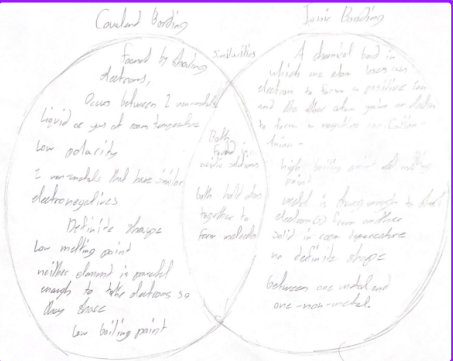 Covalent Bonding
Formed by sharing
electrons,
Occurs between 2 non-metals
Liquid or gas at room temperature
Low polarity
2 non-metals that have similar
electronegativities
Definite shape
Low melting point
neither element is powerful
enough to take electrons so
they share
Low boiling point
Similarities
Both
found in
both hold atoms
together to
form molecules
Ionic Bonding
A chemical bond in
which one atom loses an
electron to form a positive ion
and the other atom gains an electron
to form a negative ion
high boiling point and melting
point
metal is strong enough to
electron(s) from another
solid in room temperature
no definite shape
between one metal and
one non-metal.